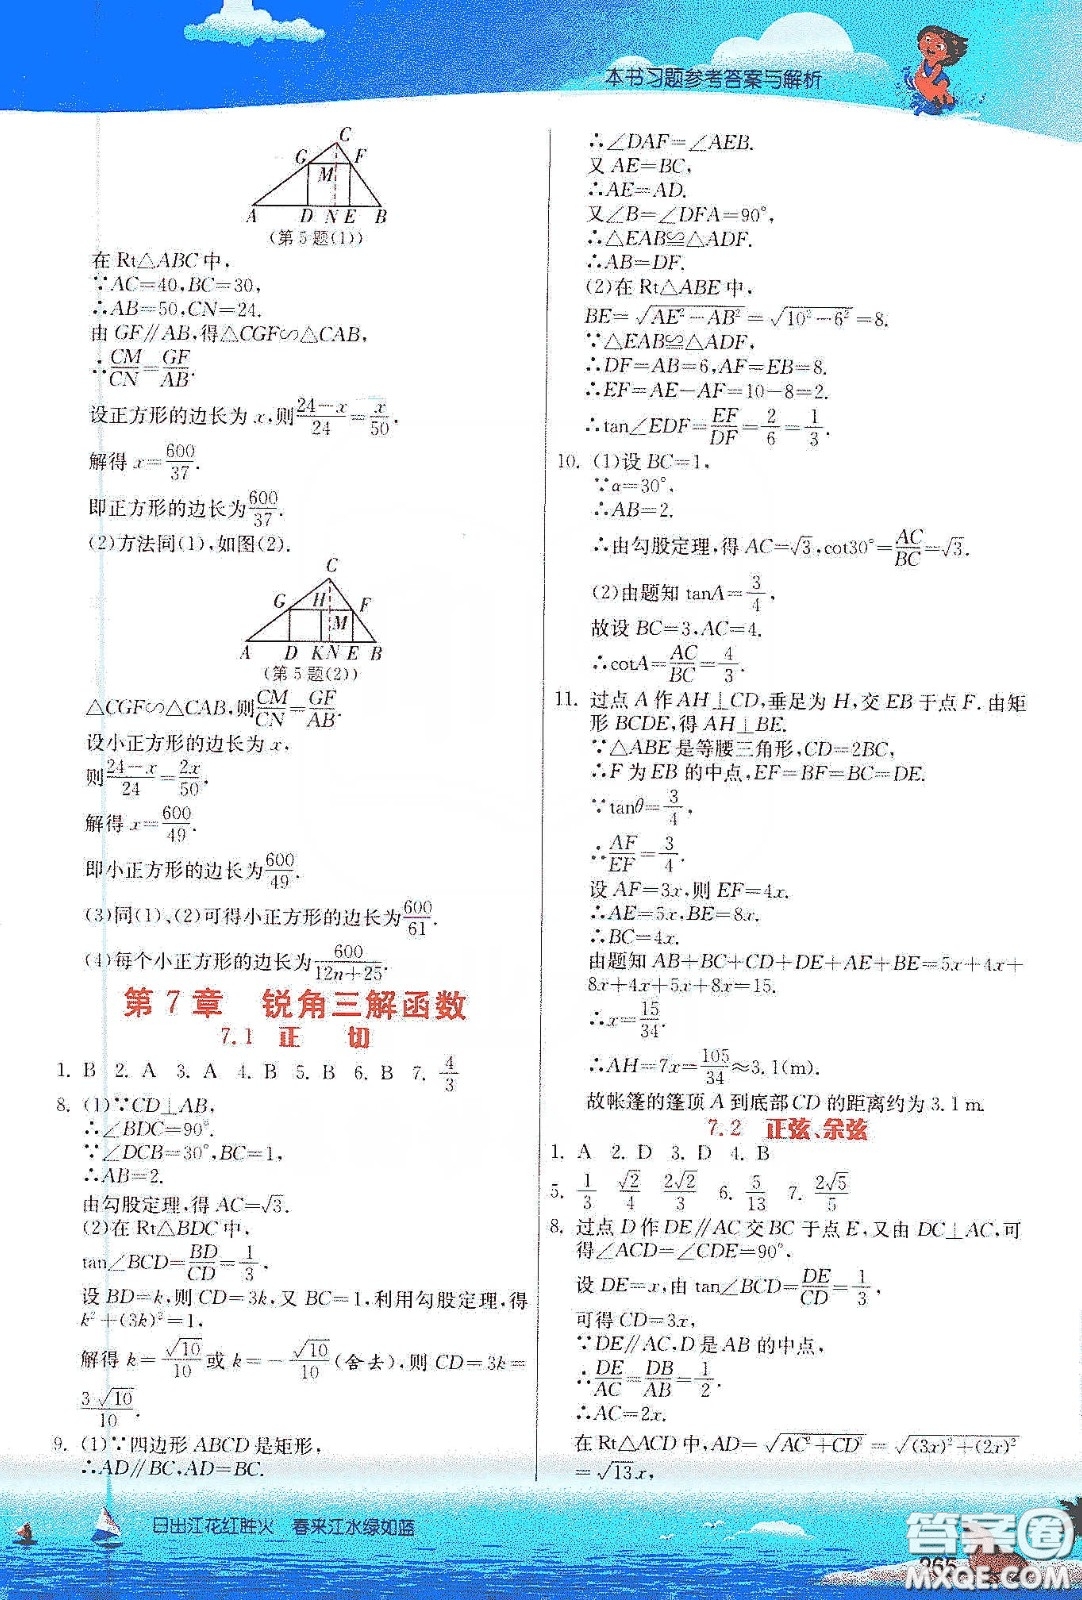 本书习题参考答案与解析
C
G F
M
A D N E B
(第5题(1))
在Rt△ABC中,
∵AC=40,BC=30,
∴AB=50,CN=24.
由GF∥AB,得△CGF∽△CAB,
∴CM/CN=GF/AB.
设正方形的边长为x,则(24-x)/24=x/50.
解得x=600/37.
即正方形的边长为600/37.
(2)方法同(1),如图(2).
C
G H F
M
A D K N E B
(第5题(2))
△CGF∽△CAB,则CM/CN=GF/AB.
设小正方形的边长为x,
则(24-x)/24=2x/50,
解得x=600/49.
即小正方形的边长为600/49.
(3)同(1)、(2)可得小正方形的边长为600/61.
(4)每个小正方形的边长为600/(12n+25).
第7章 锐角三解函数
7.1 正 切
1. B 2. A 3. A 4. B 5. B 6. B 7. 4/3
8. (1)∵CD⊥AB,
∴∠BDC=90°.
∵∠DCB=30°,BC=1,
∴AB=2.
由勾股定理,得AC=√3.
(2)在Rt△BDC中,
tan∠BCD=BD/CD=1/3,
设BD=k,则CD=3k,又BC=1,利用勾股定理,得
k²+(3k)²=1,
解得k=√10/10或k=-√10/10(舍去),则CD=3k=
3√10/10.
9. (1)∵四边形ABCD是矩形,
∴AD∥BC,AD=BC.
∴∠DAF=∠AEB.
又AE=BC,
∴AE=AD.
又∠B=∠DFA=90°,
∴△EAB≌△ADF.
∴AB=DF.
(2)在Rt△ABE中,
BE=√(AE²-AB²)=√(10²-6²)=8.
∵△EAB≌△ADF,
∴DF=AB=6,AF=EB=8.
∴EF=AE-AF=10-8=2.
∴tan∠EDF=EF/DF=2/6=1/3.
10. (1)设BC=1,
∵α=30°,
∴AB=2.
∴由勾股定理,得AC=√3,cot30°=AC/BC=√3.
(2)由题知tanA=3/4,
故设BC=3,AC=4.
∴cotA=AC/BC=4/3.
11. 过点A作AH⊥CD,垂足为H,交EB于点F.由矩
形BCDE,得AH⊥BE.
∵△ABE是等腰三角形,CD=2BC,
∴F为EB的中点,EF=BF=BC=DE.
∵tanθ=3/4,
∴AF/EF=3/4.
设AF=3x,则EF=4x.
∴AE=5x,BE=8x.
∴BC=4x.
由题知AB+BC+CD+DE+AE+BE=5x+4x+
8x+4x+5x+8x=15.
∴x=15/34.
∴AH=7x=105/34≈3.1(m).
故帐篷的篷顶A到底部CD的距离约为3.1m.
7.2 正弦、余弦
1. A 2. D 3. D 4. B
5. 1/3 √2/4 2√2/3 6. 5/13 7. 2√5/5
8. 过点D作DE∥AC交BC于点E,又由DC⊥AC,可
得∠ACD=∠CDE=90°.
设DE=x,由tan∠BCD=DE/CD=1/3,
可得CD=3x,
∵DE∥AC,D是AB的中点,
∴DE/AC=DB/AB=1/2.
∴AC=2x.
在Rt△ACD中,AD=√(AC²+CD²)=√((3x)²+(2x)²)
=√13x,
日出江花红胜火 春来江水绿如蓝
265
答案圈
MXQE.COM